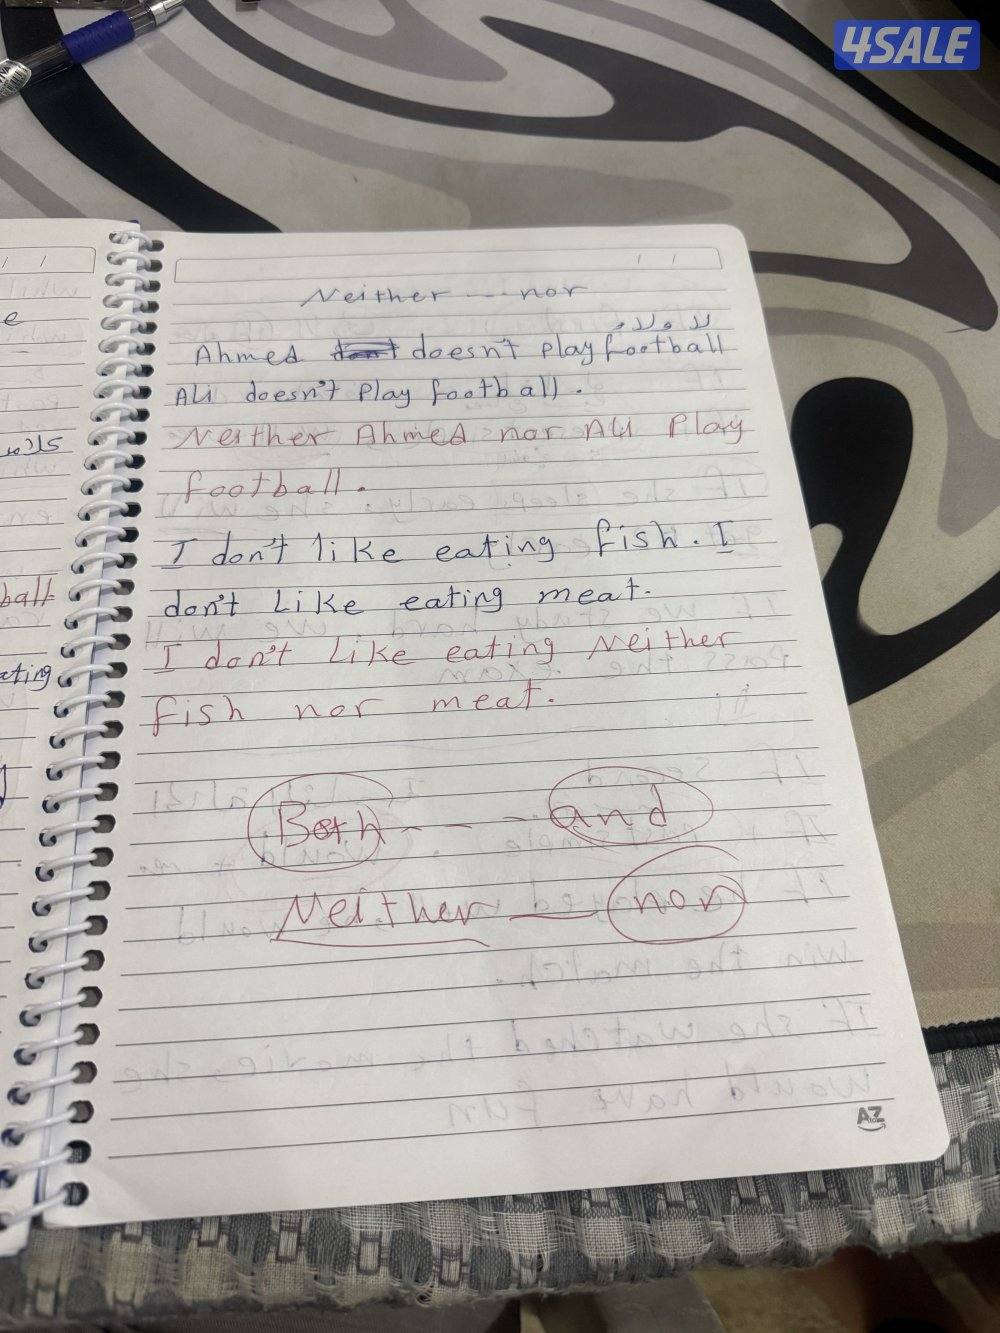 4SALE
Neither --- nor
لا ولا
Ahmed doesn't play football
Ali doesn't play football.
Neither Ahmed nor Ali Play
football.
I don't like eating fish. I
don't Like eating meat.
I don't Like eating Neither
fish nor meat.
Both - - - and
Neither — nor
ball
eting
AZ